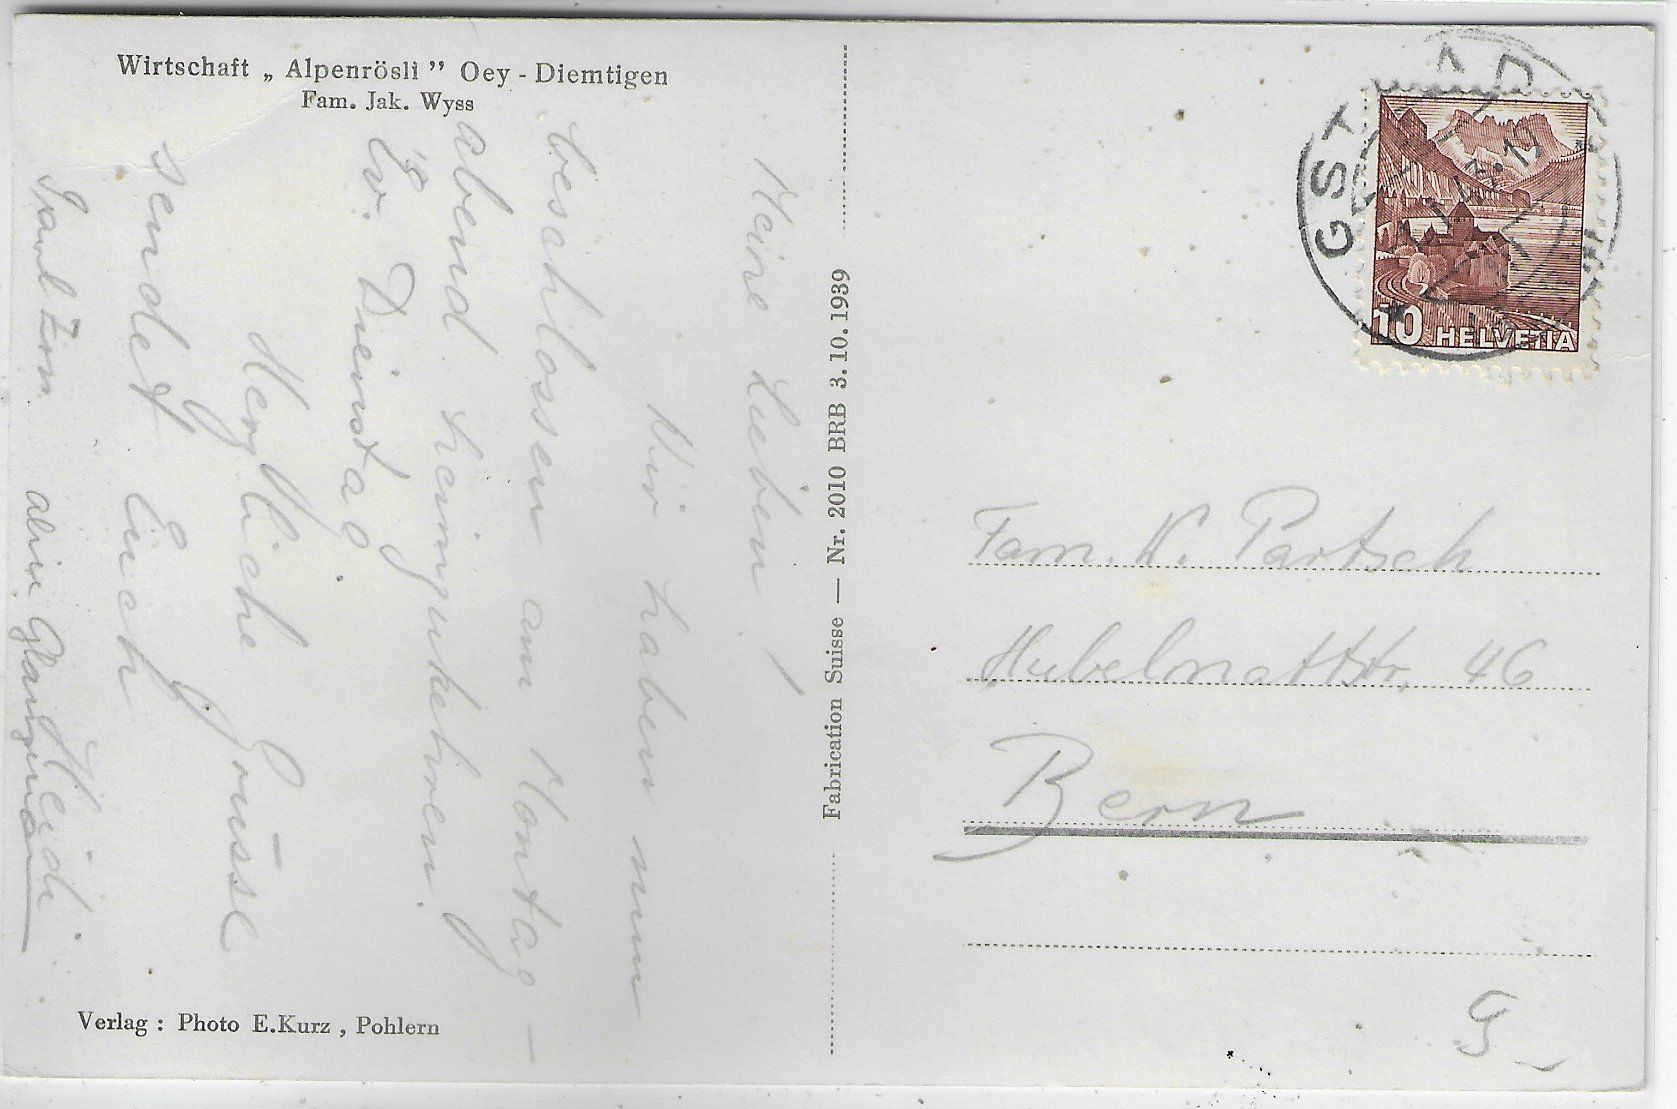 Wirtschaft „ Alpenrösli ” Oey - Diemtigen
Fam. Jak. Wyss
Meine Lieben!
Wir haben nun
beschlossen am Montag -
abend heimzukehren.
Ev. Dienstag.
Herzliche Grüsse
sendet Euch
Heidi.
Verlag : Photo E.Kurz , Pohlern
Fabrication Suisse — Nr. 2010 BRB 3. 10. 1939
GSTAAD
10 HELVETIA
Fam. K. Partsch
Hubelmattstr. 46
Bern